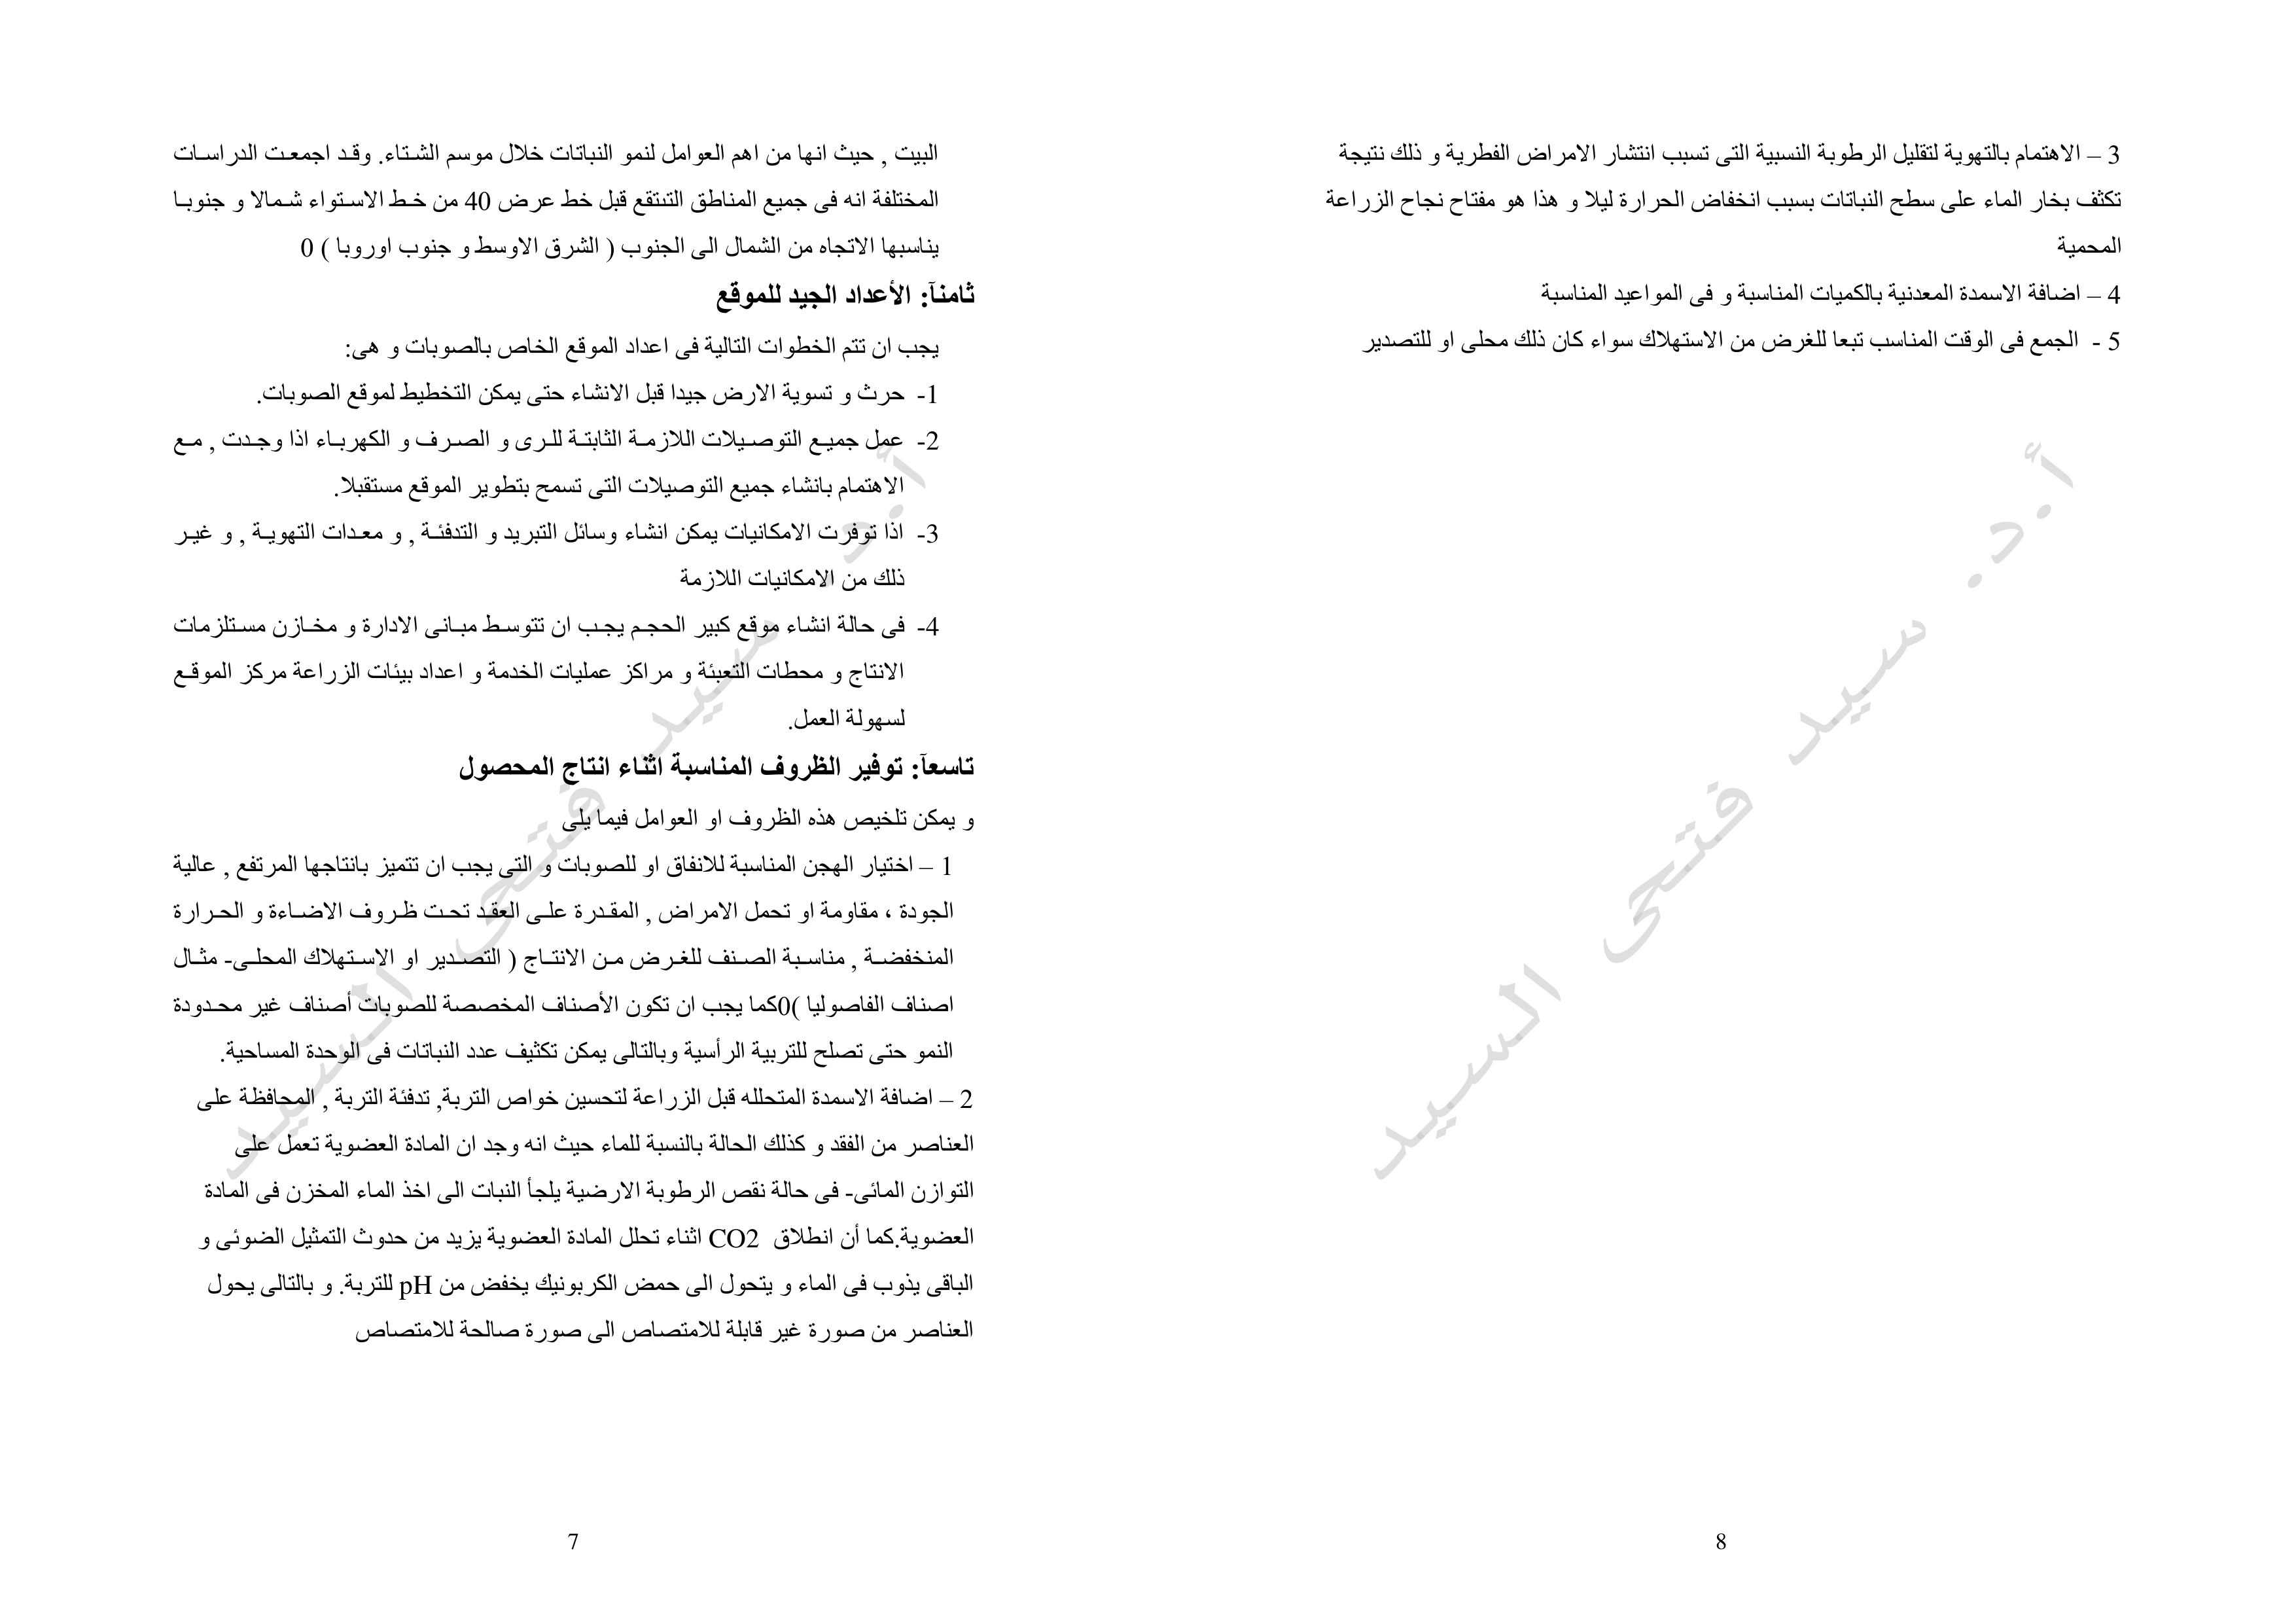 البيت , حيث انها من اهم العوامل لنمو النباتات خلال موسم الشتاء. وقد اجمعت الدراسات
المختلفة انه فى جميع المناطق التىتقع قبل خط عرض 40 من خط الاستواء شمالا و جنوبا
يناسبها الاتجاه من الشمال الى الجنوب ( الشرق الاوسط و جنوب اوروبا ) 0
ثامنآ: الأعداد الجيد للموقع
يجب ان تتم الخطوات التالية فى اعداد الموقع الخاص بالصوبات و هى:
1- حرث و تسوية الارض جيدا قبل الانشاء حتى يمكن التخطيط لموقع الصوبات.
2- عمل جميع التوصيلات اللازمة الثابتة للرى و الصرف و الكهرباء اذا وجدت , مع
الاهتمام بانشاء جميع التوصيلات التى تسمح بتطوير الموقع مستقبلا.
3- اذا توفرت الامكانيات يمكن انشاء وسائل التبريد و التدفئة , و معدات التهوية , و غير
ذلك من الامكانيات اللازمة
4- فى حالة انشاء موقع كبير الحجم يجب ان تتوسط مبانى الادارة و مخازن مستلزمات
الانتاج و محطات التعبئة و مراكز عمليات الخدمة و اعداد بيئات الزراعة مركز الموقع
لسهولة العمل.
تاسعآ: توفير الظروف المناسبة اثناء انتاج المحصول
و يمكن تلخيص هذه الظروف او العوامل فيما يلى
1 – اختيار الهجن المناسبة للانفاق او للصوبات و التى يجب ان تتميز بانتاجها المرتفع , عالية
الجودة ، مقاومة او تحمل الامراض , المقدرة على العقد تحت ظروف الاضاءة و الحرارة
المنخفضة , مناسبة الصنف للغرض من الانتاج ( التصدير او الاستهلاك المحلى- مثال
اصناف الفاصوليا )0كما يجب ان تكون الأصناف المخصصة للصوبات أصناف غير محدودة
النمو حتى تصلح للتربية الرأسية وبالتالى يمكن تكثيف عدد النباتات فى الوحدة المساحية.
2 – اضافة الاسمدة المتحلله قبل الزراعة لتحسين خواص التربة, تدفئة التربة , المحافظة على
العناصر من الفقد و كذلك الحالة بالنسبة للماء حيث انه وجد ان المادة العضوية تعمل على
التوازن المائى- فى حالة نقص الرطوبة الارضية يلجأ النبات الى اخذ الماء المخزن فى المادة
العضوية.كما أن انطلاق CO2 اثناء تحلل المادة العضوية يزيد من حدوث التمثيل الضوئى و
الباقى يذوب فى الماء و يتحول الى حمض الكربونيك يخفض من pH للتربة. و بالتالى يحول
العناصر من صورة غير قابلة للامتصاص الى صورة صالحة للامتصاص
أ.د. سيد فتحى السيد
7
3 – الاهتمام بالتهوية لتقليل الرطوبة النسبية التى تسبب انتشار الامراض الفطرية و ذلك نتيجة
تكثف بخار الماء على سطح النباتات بسبب انخفاض الحرارة ليلا و هذا هو مفتاح نجاح الزراعة
المحمية
4 – اضافة الاسمدة المعدنية بالكميات المناسبة و فى المواعيد المناسبة
5 - الجمع فى الوقت المناسب تبعا للغرض من الاستهلاك سواء كان ذلك محلى او للتصدير
أ.د. سيد فتحى السيد
8